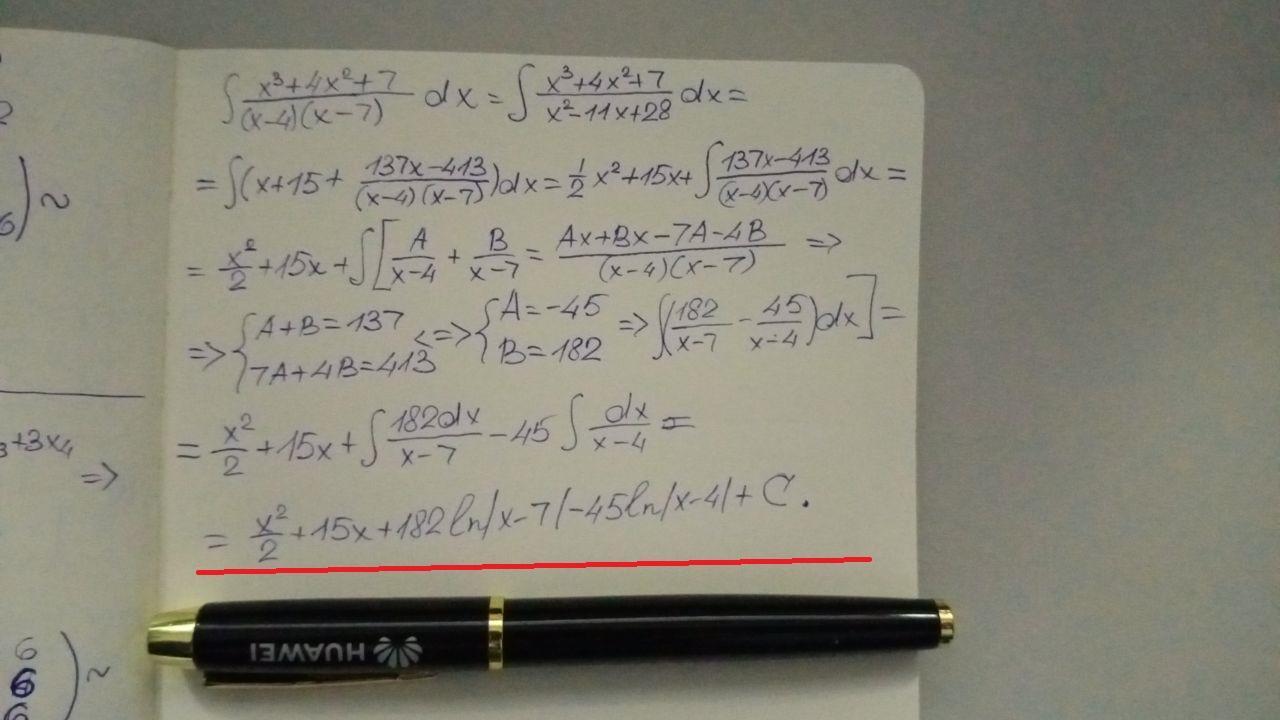 ∫ (x³+4x²+7)/((x-4)(x-7)) dx = ∫ (x³+4x²+7)/(x²-11x+28) dx =
= ∫(x+15+ (137x-413)/((x-4)(x-7)))dx = 1/2 x²+15x+ ∫ (137x-413)/((x-4)(x-7)) dx =
= x²/2 +15x+ ∫[ A/(x-4) + B/(x-7) = (Ax+Bx-7A-4B)/((x-4)(x-7)) =>
=> { A+B=137 7A+4B=413 <=> { A=-45 B=182 => ∫(182/(x-7) - 45/(x-4))dx ] =
= x²/2 +15x+ ∫ 182dx/(x-7) -45 ∫ dx/(x-4) =
= x²/2 +15x+182 ln|x-7|-45ln|x-4|+ C.
2
6)~
3+3x₄
=>
6
6
6
)~
HUAWEI